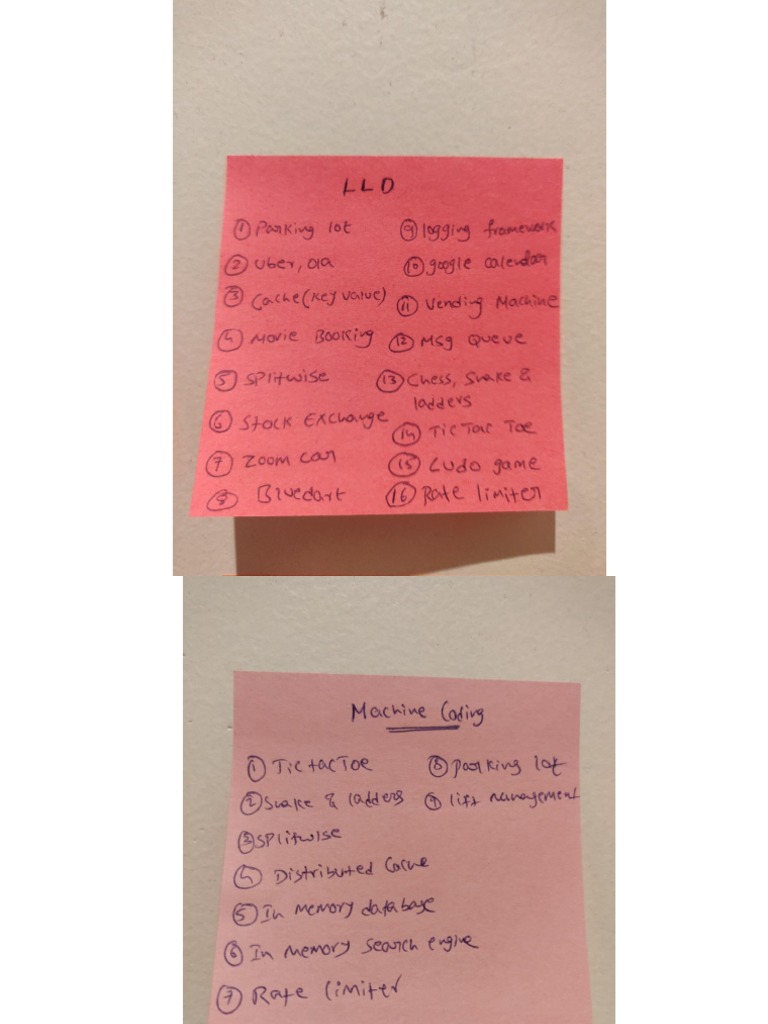 LLD
① Parking lot
② Uber, Ola
③ Cache (key value)
④ Movie Booking
⑤ Splitwise
⑥ Stock Exchange
⑦ Zoom car
⑧ Bluedart
⑨ logging framework
⑩ google calendar
⑪ Vending Machine
⑫ Msg Queue
⑬ Chess, Snake &
ladders
⑭ Tic Tac Toe
⑮ Ludo game
⑯ Rate limiter
Machine Coding
① Tic tac Toe
② Snake & ladders
③ Splitwise
④ Distributed Cache
⑤ In memory database
⑥ In memory search engine
⑦ Rate limiter
⑧ parking lot
⑨ lift management